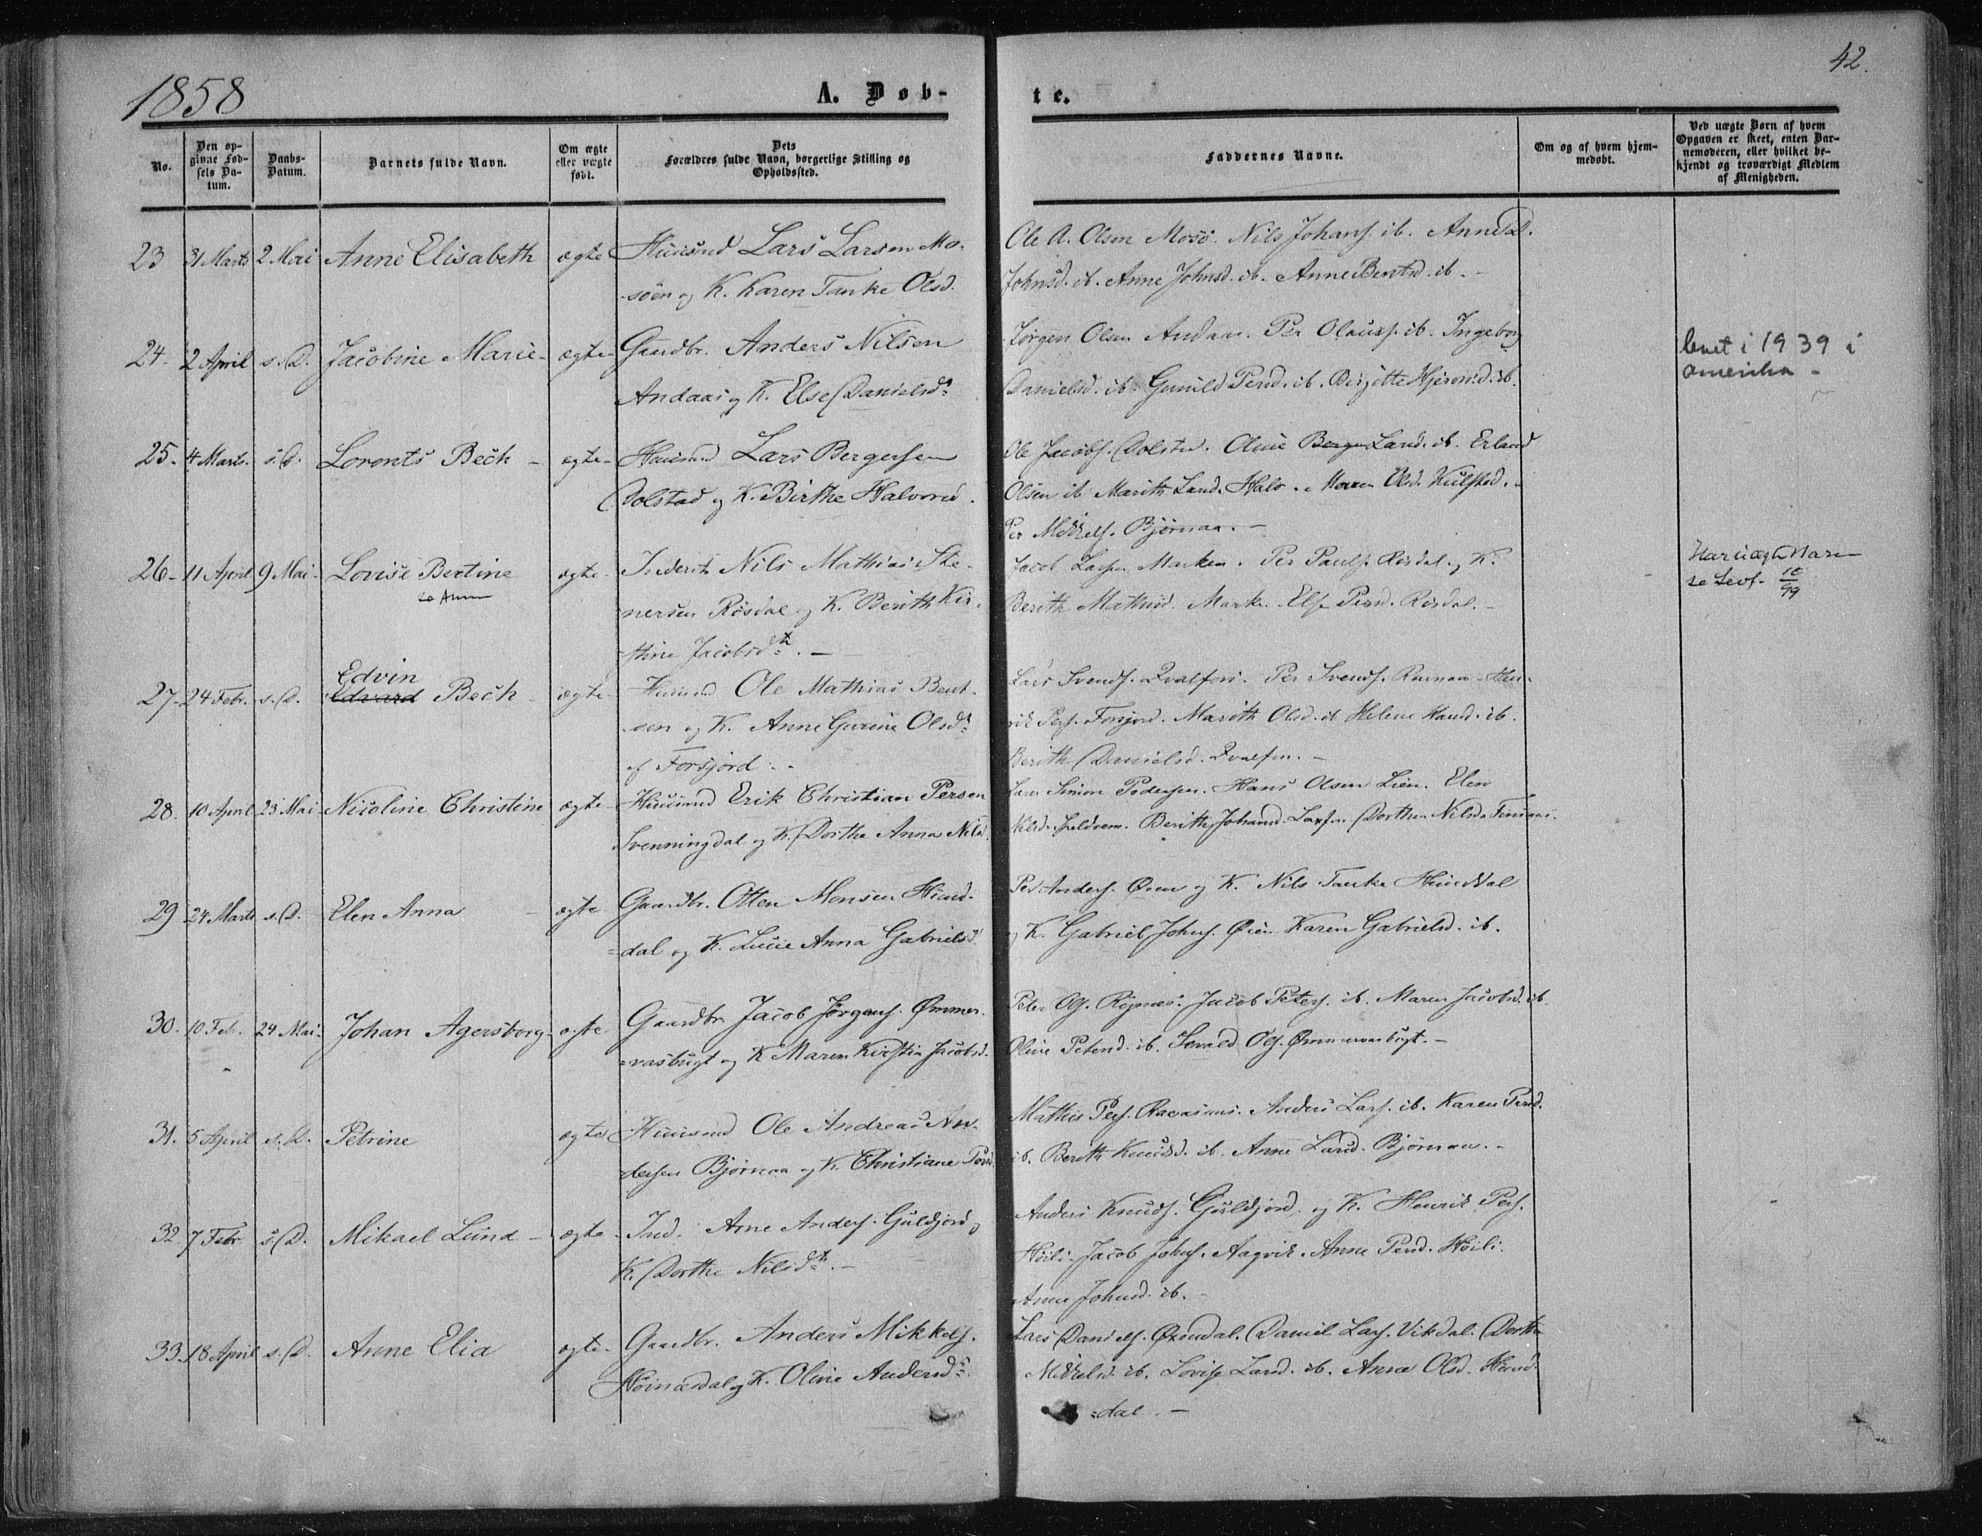 1858
A. Døb-
te.
42.
No.
Den op-
givne Fød-
sels Da-
tum.
Daabs-
Datum.
Barnets fulde Navn.
Om ægte
eller uægte
født.
Dets
Forældres fulde Navn, borgerlige Stilling og
Opholdssted.
Faddernes Navne.
Om og af hvem hjem-
medøbt.
Ved uægte Børn af hvem
Opgaven er skeet, enten Bar-
nemoderen, eller hvilket be-
kjendt og troværdigt Medlem
af Menigheden.
23 31 Marts 2 Mai Anne Elisabeth ægte Huusmd Lars Larsen Mo-
söen og K. Karen Tanke Olsd.
Ole A. Olsen Mosö. Nils Johans. ib.
Johnsd. ib. Anne Johnsd. ib. Anne Berntsd. ib. -
24- 2 April s. D. Jacobine Marie- ægte- Gaardbr. Anders Nilsen
Andaas og K. Else Danielsd.
Jørgen Olsen Andaas. Per Olaus. ib. Ingeborg
Danielsd. ib. Gunild Persd. ib. Birgitte ib.
levet i 1939 i
Amerika -
25- 4 Marts. s. D. Lorents Bech - ægte- Huusmd Lars Bergersen
Dolstad og K. Birthe Halvorsd.
Ole Jacobs. Dolstad. Oline Larsd. ib. Erland
Olsen ib Marith Larsd. Olsd. Kulstad. -
Per Mikkels. Bjørnaa. -
26- 11 April 9 Mai- Lovise Bertine ægte- Inderst Nils Mathias Ste-
nersen Røsdal og K. Berith Kir-
stine Jacobsd. -
Jacob Marken. Per Pauls. Røsdal og K.
Berith Mathisd. Marken. Else Persd. Røsdal. -
10/99
27- 24 Febr. s. D. Edvin
Edvard Bech - ægte- Huusmd Ole Mathias Bent-
sen og K. Anne Gurine Olsd.
af Forsjord. -
Lars Svends. Qvalfors. Per Svends. Ravnaa. Hen-
rik Pers. Forsjord. Marith Olsd. ib Helene Hansd. ib.
Berith Danielsd. Qvalfors. -
28. 10 April 23 Mai- Nicoline Christine ægte- Huusmd Erik Christian Persen
Svenningdal og K. Dorthe Anna Nilsd.
Lars Simon Pedersen. Hans Olsen Lien. Elen
Nilsd. Berith Johansd. Laxfors. Dorthea Nilsd.
29 24 Marts s. D. Elen Anna - ægte Gaardbr. Otten Monsen Hund-
dal og K. Lucie Anna Gabrielsd.
Per Anders. Øien og K. Nils Tanke Hunddal
og K. Gabriel Johns. Øien Karen Gabrielsd. ib.
30. 10 Feb. 24 Mai- Johan Agersborg- ægte- Gaardbr. Jacob Jørgens. Ømmer-
vasbugt og K. Maren Kirstin Jacobsd.
Peter Ols. Rynæs. Jacob Peters. ib. Maren Jacobsd. ib.
Oline Petersd. ib. Sevald Ols. Ømmervasbugt. -
31. 5 April s. D. Petrine ægte Huusmd Ole Andreas An-
dersen Bjørnaa og K. Christiane Persd.
Mathis Pers. Anders Lars. ib. Karen Persd.
ib. Berith Knudsd. ib. Anne Larsd. Bjørnaa. -
32 7 Febr s. D. Mikael Lund - ægte- Ind. Arne Anders. Guldfjord og
K. Dorthe Nilsd. -
Anders Knuds. Guldfjord og K. Henrik Pers.
Høili. Jacob Johns. Aagvik. Anne Persd. Høili.
Anne Johnsd. ib. -
33. 18 April s. D. Anne Elia ægte- Gaardbr. Anders Mikkels.
Høinæsdal og K. Oline Andersd.
Lars Daniels. Øxendal. Daniel Lars. Vikdal. Dorthe
Mikkelsd. ib. Lovise Larsd. ib. Anne Olsd. Hund-
-dal. -